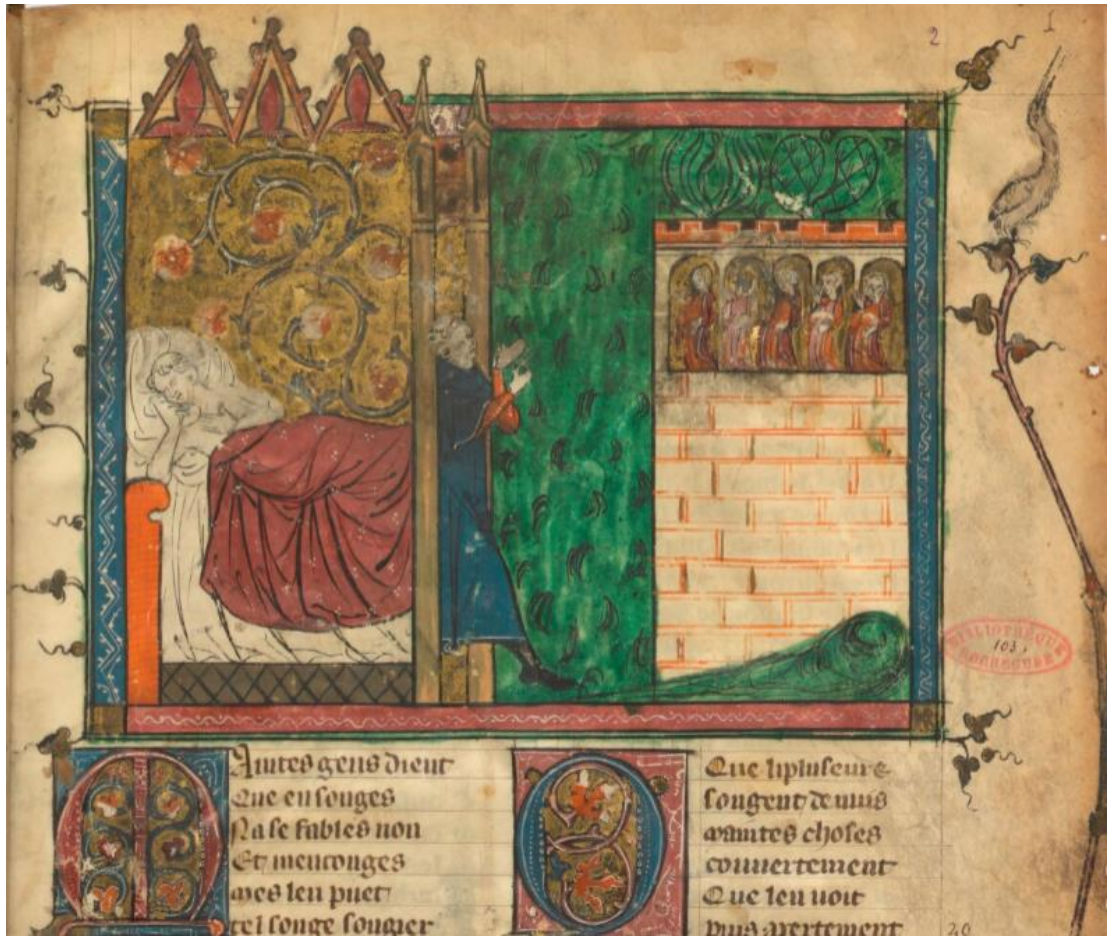 2 1
BIBLIOTHEQUE
103.
Maintes gens dient
Que en songes
Na se fables non
Et menconges
Mes len puet
tel songe songier
Que li pluseurs
songent de nuis
maintes choses
couuertement
Que len uoit
puis apertement
20